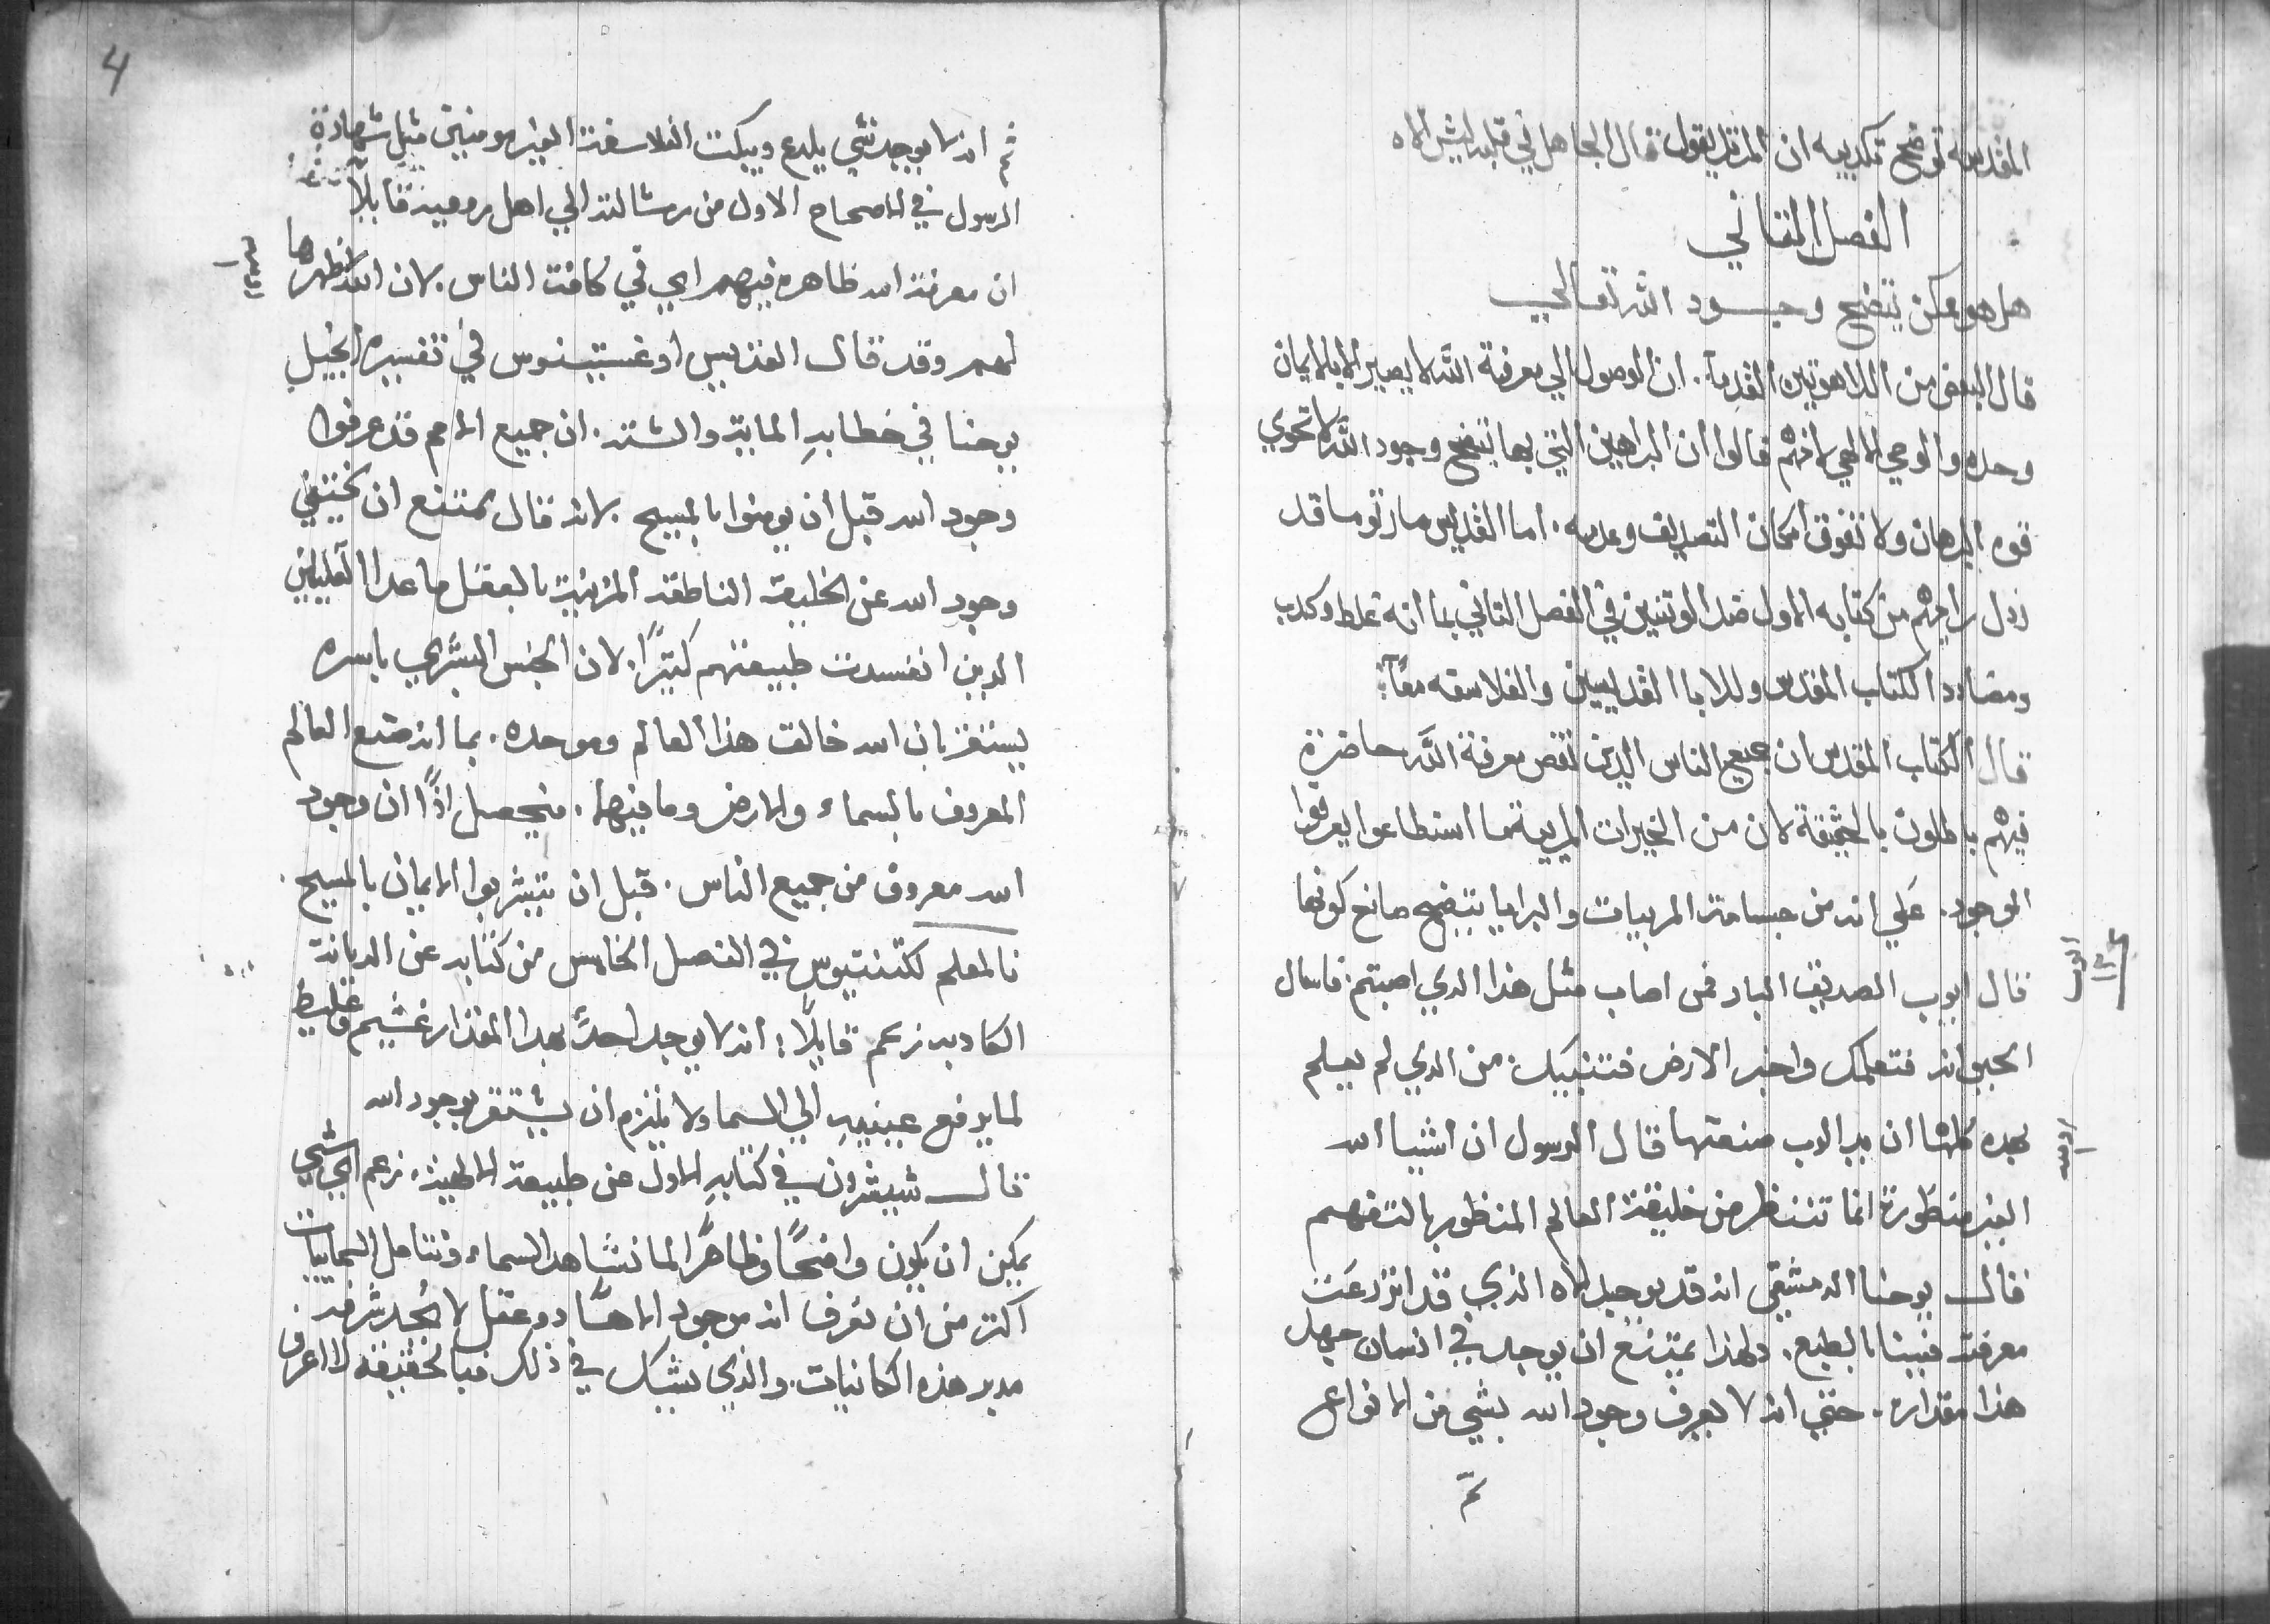 المقدسه توضح تكديبه ان المرتل يقول قال الجاهل في قلبه ليس الاه
الفصل الثاني
هل هو ممكن يتضح وجود الله تعالي
قال البعض من اللاهوتيين القدما. ان الوصول الي معرفة الله لا يصير الا بالايمان
وحده والوحي الالهي لانهم قالوا ان البراهين التي بها يتضح وجود الله لا تحوي
قوه البرهان ولا تفوق امكان التصديق وعدمه. اما القديس مار توما قد
زول رايهم من كتابه الاول ضد الوتنيين في الفصل التاني بما انه غلط وكدب
ومضادد الكتاب المقدس وللابا القديسين والفلاسفه معاً
قال الكتاب المقدس ان جميع الناس الدين تنقص معرفة الله حاضرة
فيهم باطلون بالحقيقة لان من الخيرات المريية ما استطاعوا يعرفوا
الموجود. علي انه من جسامة المرييات والبرايا يتضح صانع كونها
قال ايوب الصديق البار فمن اصاب مثل هذا الدي اصبتم. فاسال
الحيوانه فتعلمك واخبر الارض فتنبيك. من الدي لم يعلم
بهده كلها ان يد الرب صنعتها قال الرسول ان اشيا الله
الغير منظورة انما تننظر من خليقة العالم المنظور بالتفهم
قال يوحنا الدمشقي انه قد يوجد الاه الذي قد انزرعت
معرفته فينا بالطبع. ولهذا يمتنع ان يوجد في انسان جهل
هذا مقداره. حتي انه لا يعرف وجود الله بشي من الانواع
ثم
ايوب
١٢
رومية
4
ثم انه لا يوجد شي يلدع ويبكت الفلاسفة الغير مومنين مثل شهادة
الرسول في الاصحاح الاول من رسالته الي اهل رومية قايلاً
ان معرفة الله ظاهره فيهم اي في كافة الناس. لان الله اظهرها
لهم وقد قال القديس اوغستينوس في تفسيره انجيل
يوحنا في خطابه الماية والستة. ان جميع الامم قد عرفوا
وجود الله قبل ان يومنوا بالمسيح لانه قال يمتنع ان يختفي
وجود الله عن الخليقة الناطقة المزينة بالعقل ما عدا القليلين
الدين انفسدت طبيعتهم كثيرًا. لان الجنس البشري باسره
يستقر بان الله خالق هذا العالم وموحده. بما انه صنع العالم
المعروف بالسماء والارض وما فيها. فيحصل اذًا ان وجود
الله معروف من جميع الناس. قبل ان يتشربوا الايمان بالمسيح.
فالمعلم لكتنتيوس في الفصل الخامس من كتابه عن الديانة
الكادبه زعم قايلاً: انه لا يوجد احدٌ بهدا المقدار غشيم وغليظ
لما يرفع عينيه الي السما ولا يلتزم ان يستقر بوجود الله
قال شيشرون في كتابه الاول عن طبيعة الالهية. زعم اي شي
يمكن ان يكون واضحًا وظاهرًا لما نشاهد السماء ونتامل السماييات
اكتر من ان نعرف انه موجود الاهًا دو عقل لا يُحد شرفه.
مدبر هذه الكاينات. والذي يشك في ذلك فبالحقيقة لا اعرف